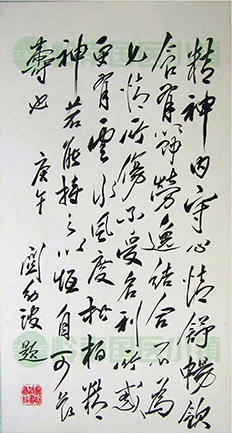 精神内守心情舒暢飲
食有節勞逸結合不為
七情所傷不受名利所惑
更有雲水風度松柏精
神若能持之以恒自可長
壽也
庚午
關幼波題